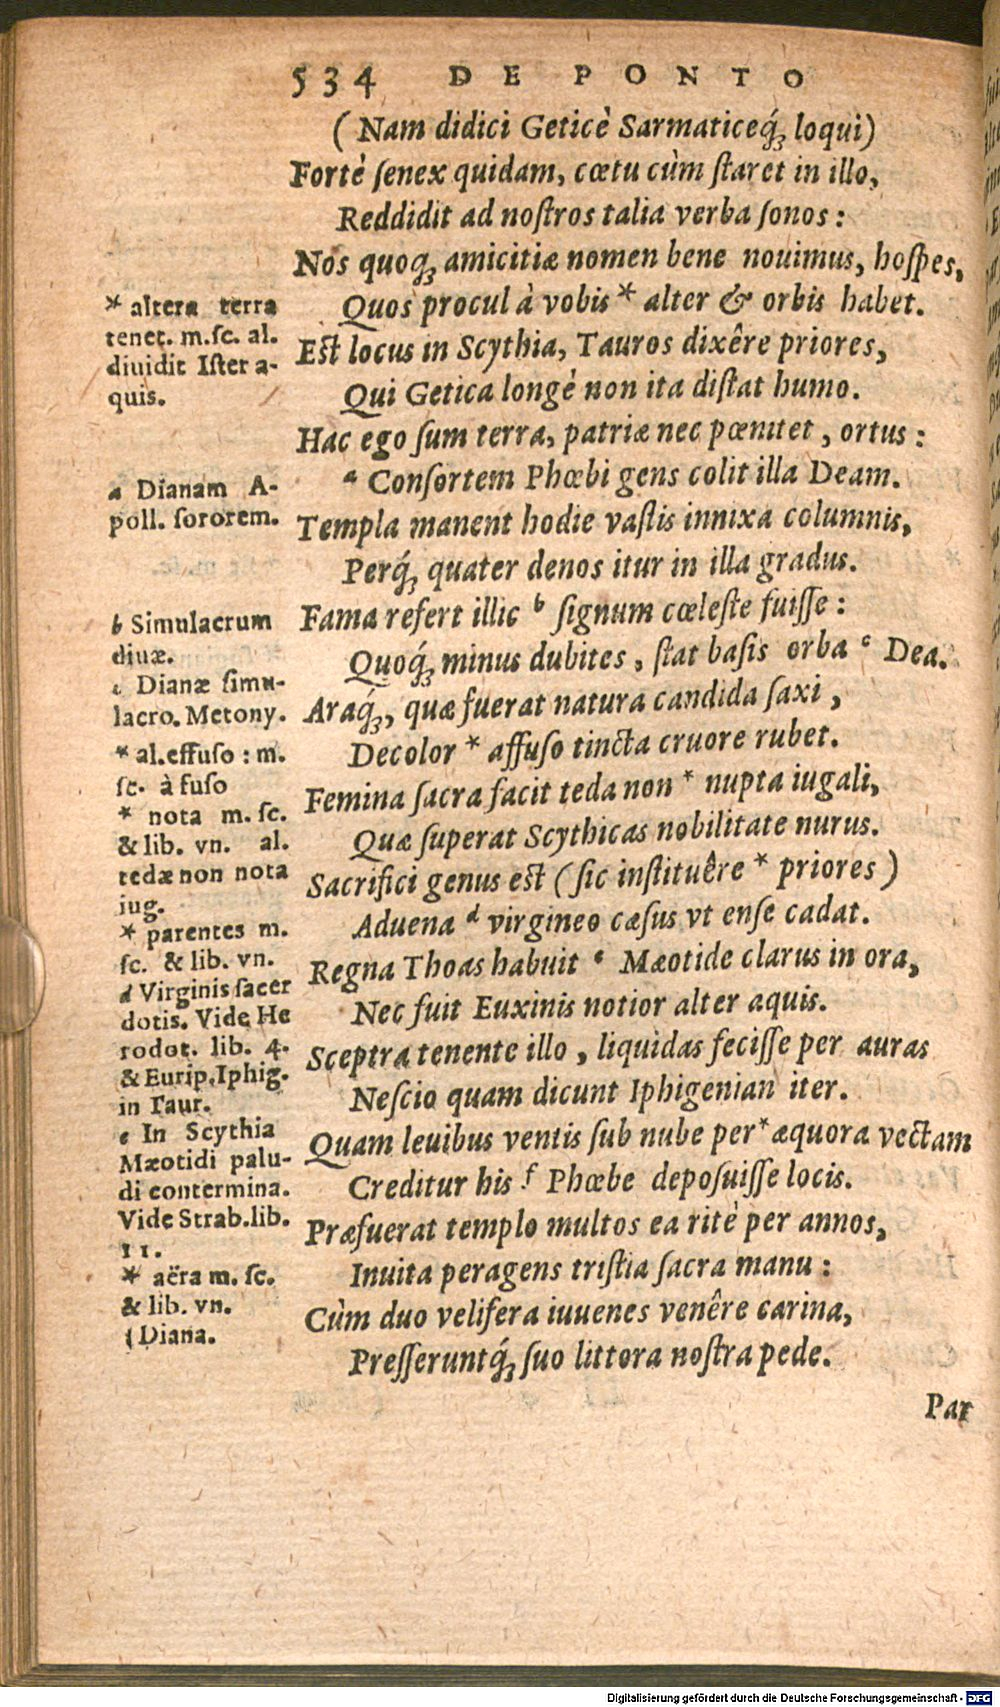 534 DE PONTO
(Nam didici Geticè Sarmaticeq́ꝫ loqui)
Fortè ſenex quidam, cœtu cùm ſtaret in illo,
Reddidit ad noſtros talia verba ſonos:
Nos quoqꝫ amicitiæ nomen bene nouimus, hoſpes,
Quos procul à vobis * alter & orbis habet.
Eſt locus in Scythia, Tauros dixêre priores,
Qui Getica longè non ita diſtat humo.
Hac ego ſum terra, patriæ nec pœnitet, ortus:
a Conſortem Phœbi gens colit illa Deam.
Templa manent hodie vaſtis innixa columnis,
Perq́ꝫ quater denos itur in illa gradus.
Fama refert illic b ſignum cœleſte fuiſſe:
Quoq́ꝫ minus dubites, ſtat baſis orba c Dea.
Araq́ꝫ, quæ fuerat natura candida ſaxi,
Decolor * affuſo tincta cruore rubet.
Femina ſacra facit teda non * nupta iugali,
Quæ ſuperat Scythicas nobilitate nurus.
Sacrifici genus eſt (ſic inſtituêre * priores)
Aduena d virgineo cæſus vt enſe cadat.
Regna Thoas habuit e Mæotide clarus in ora,
Nec fuit Euxinis notior alter aquis.
Sceptra tenente illo, liquidas feciſſe per auras
Neſcio quam dicunt Iphigenian iter.
Quam leuibus ventis ſub nube per * æquora vectam
Creditur his f Phœbe depoſuiſſe locis.
Præfuerat templo multos ea ritè per annos,
Inuita peragens triſtia ſacra manu:
Cùm duo velifera iuuenes venêre carina,
Preſſeruntq́ꝫ ſuo littora noſtra pede.
Par
* altera terra
tenet. m.ſc. al.
diuidit Iſter a-
quis.
a Dianam A-
poll. ſororem.
b Simulacrum
diuæ.
c Dianæ ſimu-
lacro. Metony.
* al. effuſo: m.
ſc. à fuſo
* nota m. ſc.
& lib. vn. al.
tedæ non nota
iug.
* parentes m.
ſc. & lib. vn.
d Virginis ſacer
dotis. Vide He
rodot. lib. 4.
& Eurip. Iphig.
in Taur.
e In Scythia
Mæotidi palu-
di contermina.
Vide Strab. lib.
11.
* aëra m. ſc.
& lib. vn.
f Diana.
Digitalisierung gefördert durch die Deutsche Forschungsgemeinschaft - DFG